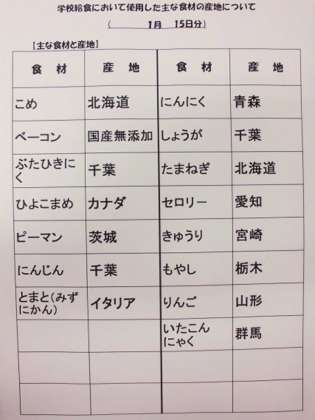 学校給食において使用した主な食材の産地について
( 1月 15日分)
[主な食材と産地]
食 材 産 地 食 材 産 地
こめ 北海道 にんにく 青森
ベーコン 国産無添加 しょうが 千葉
ぶたひきに
く 千葉 たまねぎ 北海道
ひよこまめ カナダ セロリー 愛知
ピーマン 茨城 きゅうり 宮崎
にんじん 千葉 もやし 栃木
とまと(みず
にかん) イタリア りんご 山形
いたこん
にゃく 群馬